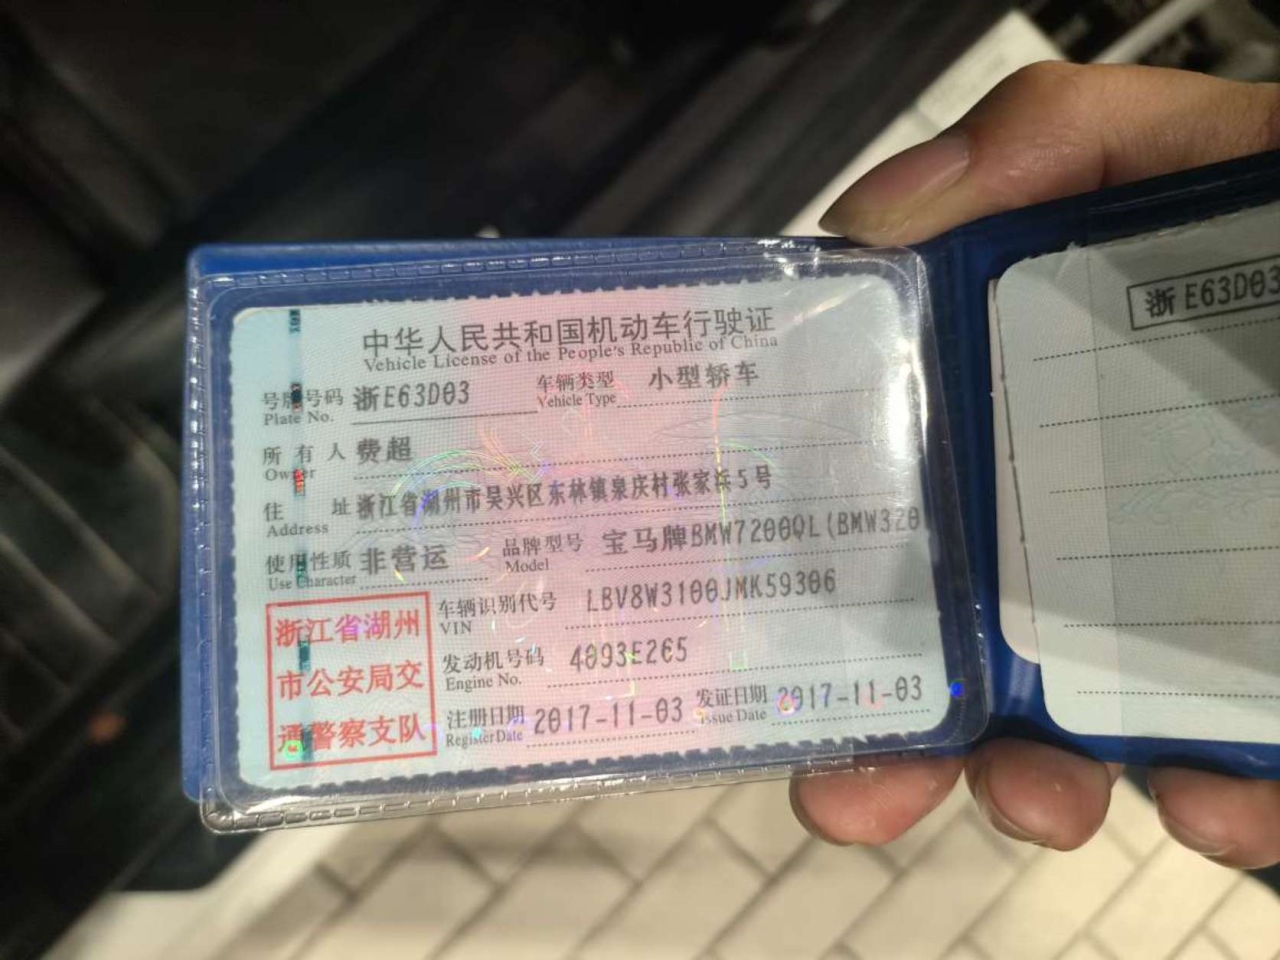 中华人民共和国机动车行驶证
Vehicle License of the People's Republic of China
号牌号码 浙E63D03 车辆类型 小型轿车
Plate No. Vehicle Type
所有人 费超
Owner
住址 浙江省湖州市吴兴区东林镇泉庆村张家浜5号
Address
使用性质 非营运 品牌型号 宝马牌BMW7200QL(BMW320
Use Character Model
车辆识别代号 LBV8W3100JMK59306
VIN
发动机号码 4093E265
Engine No.
注册日期 2017-11-03 发证日期 2017-11-03
Register Date Issue Date
浙江省湖州
市公安局交
通警察支队
浙E63D03